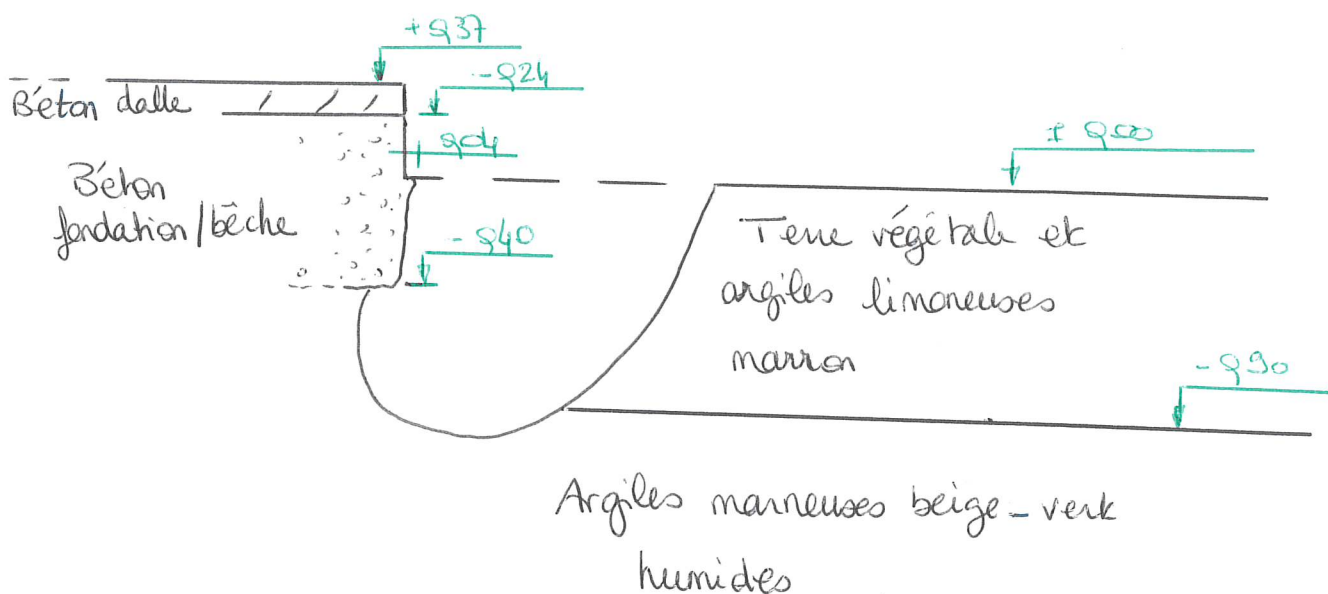 + 0,37
- 0,24
Béton dalle
0,04
± 0,00
Béton
fondation/bêche
- 0,40
Terre végétale et
argiles limoneuses
marron
- 0,90
Argiles marneuses beige-vert
humides